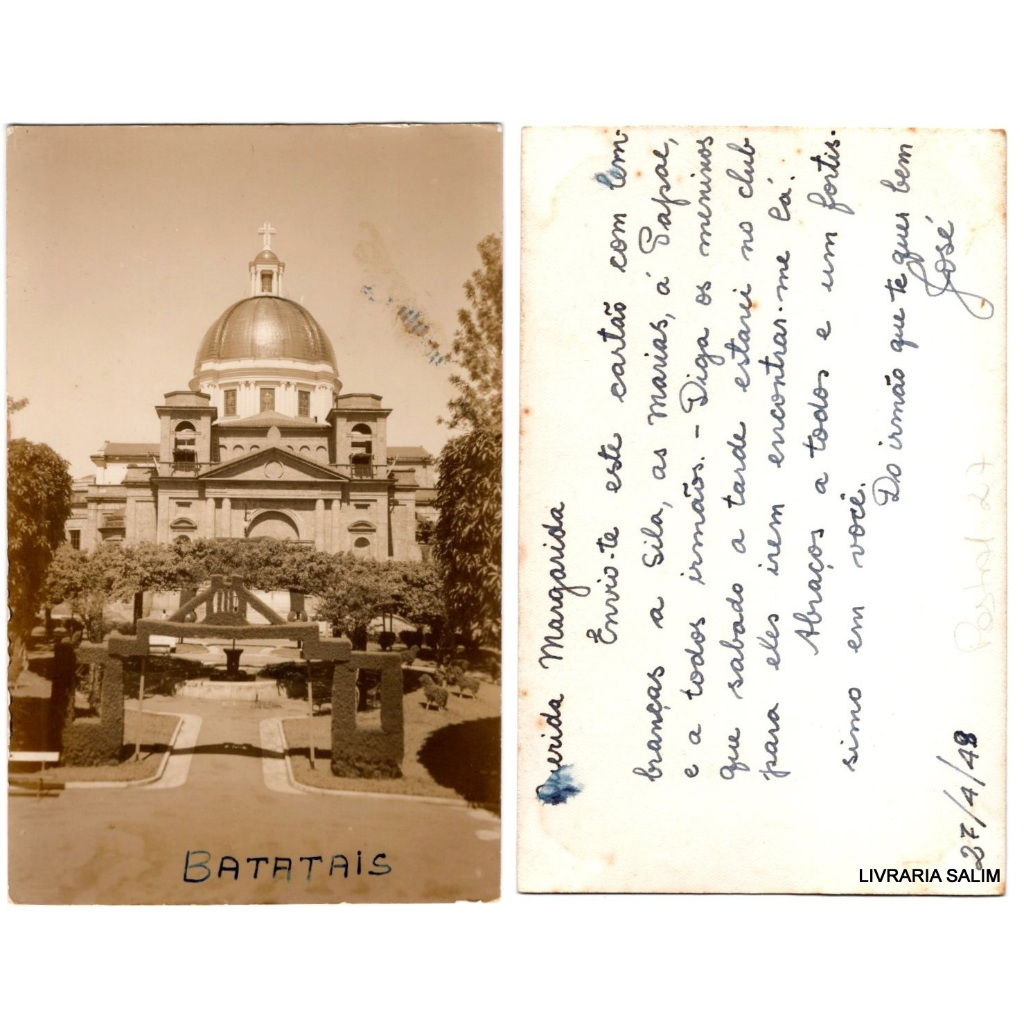 BATATAIS
Querida Margarida
Envio-te este cartão com lem-
branças a Sila, as Marias, á Papae,
e a todos irmãos. - Diga os meninos
que sabado a tarde estarei no club
para eles irem encontrar-me lá.
Abraços a todos e um fortis-
simo em você.
Do irmão que te quer bem
José
27/4/48
Postal 27
LIVRARIA SALIM